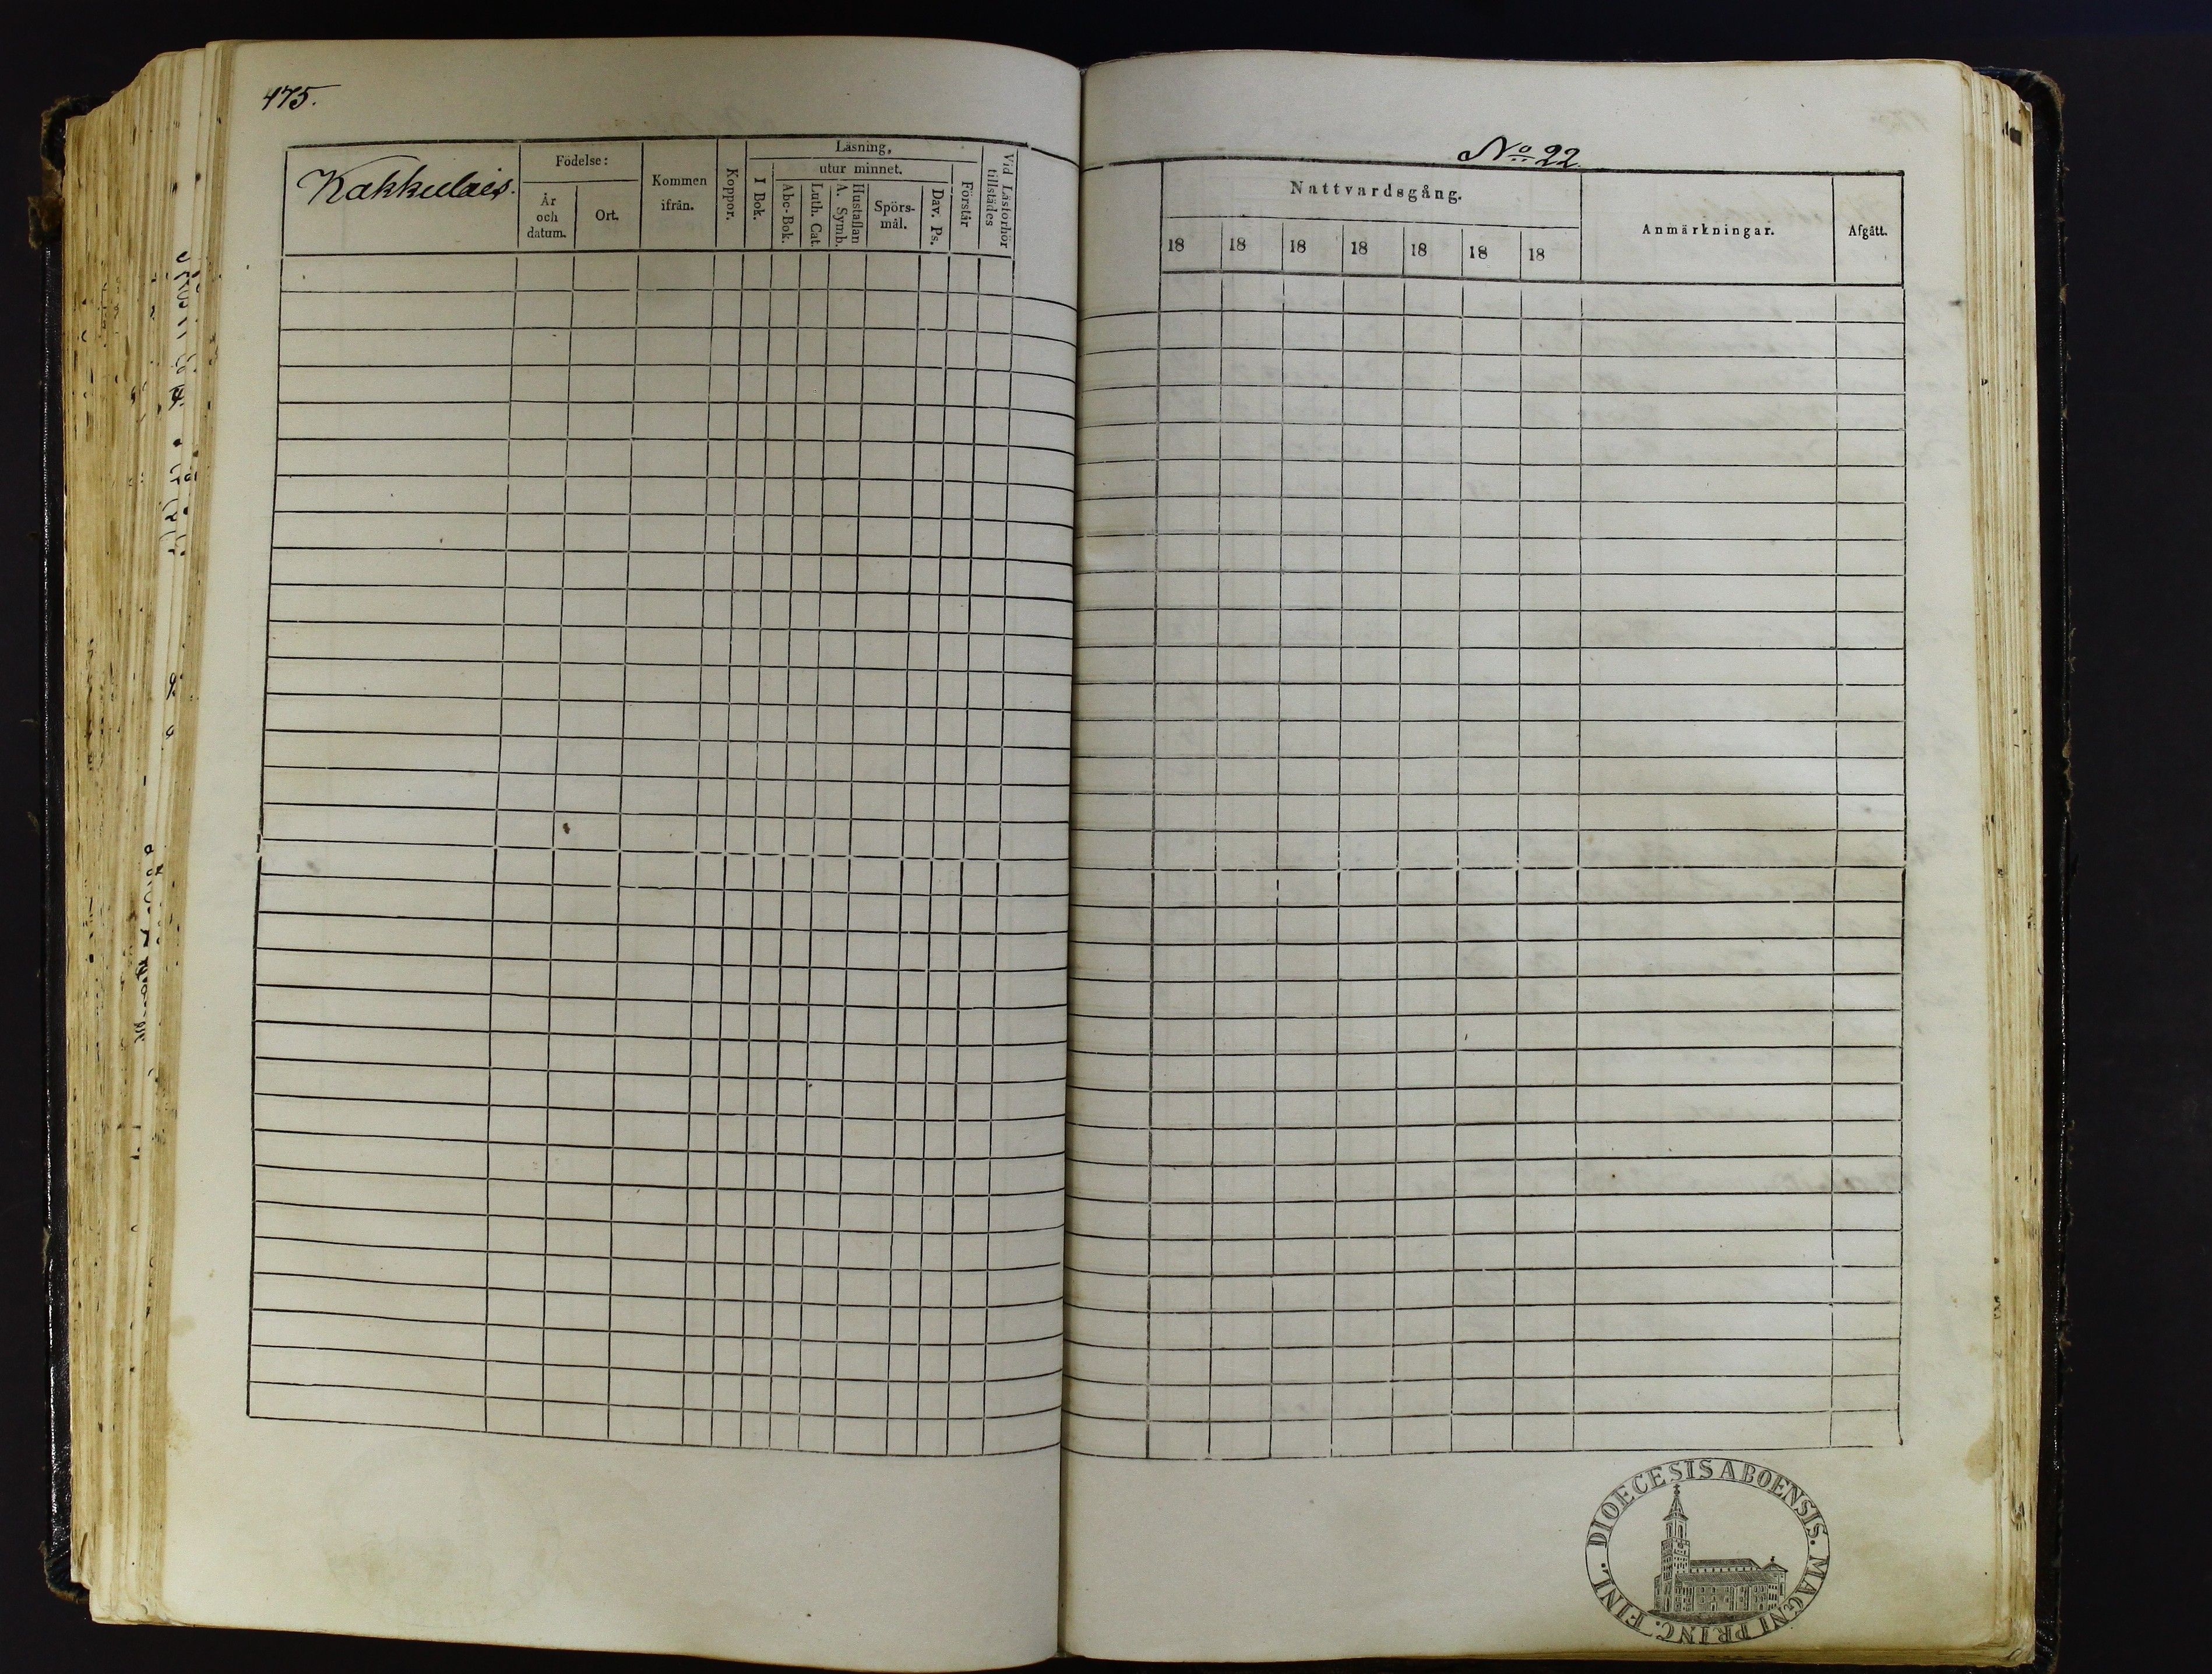 475.
Kakkulais.
Födelse:
År
och
datum.
Ort.
Kommen
ifrån.
Koppor.
Läsning,
utur minnet.
I Bok.
Abc-Bok.
Luth. Cat.
Hustaflan
A. Symb.
Spörs-
mål.
Dav. Ps.
Förstår
Vid Läsförhör
tillstädes
No 22.
Nattvardsgång.
18 18 18 18 18 18 18
Anmärkningar.
Afgått.
DIOECESIS ABOENSIS. MAGNI PRINC. FINL.